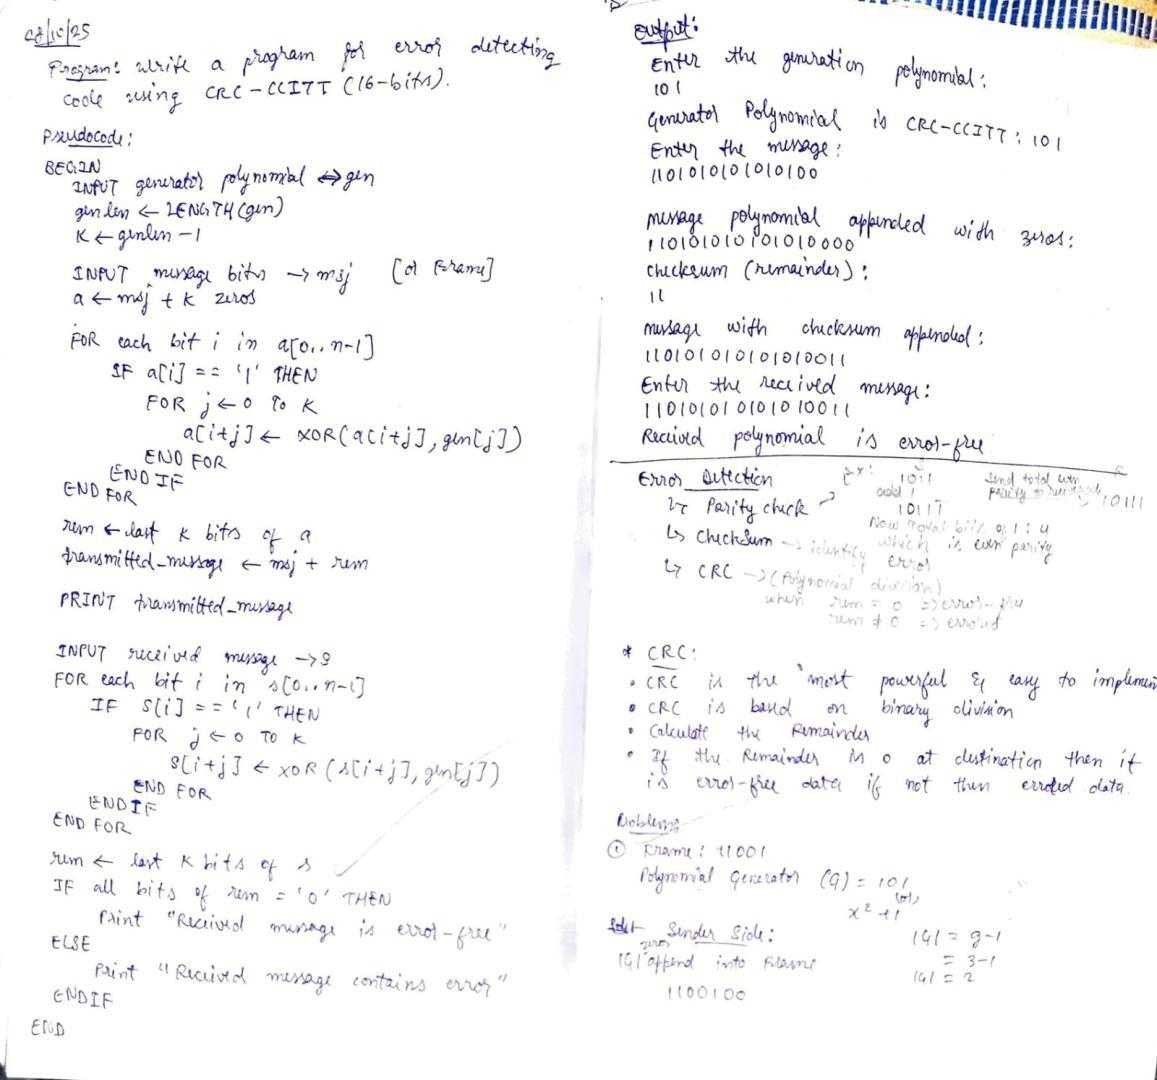 08/10/25
Program: Write a program for error detecting
code using CRC-CCITT (16-bits).
Pseudocode:
BEGIN
INPUT generator polynomial ⇔ gen
genlen ← LENGTH(gen)
K ← genlen - 1
INPUT message bits → msj [or Frame]
a ← msj + K zeros
FOR each bit i in a[0..n-1]
IF a[i] == '1' THEN
FOR j ← 0 TO K
a[i+j] ← XOR(a[i+j], gen[j])
END FOR
END IF
END FOR
rem ← last K bits of a
transmitted_message ← msj + rem
PRINT transmitted_message
INPUT received message → s
FOR each bit i in s[0..n-1]
IF s[i] == '1' THEN
FOR j ← 0 TO K
s[i+j] ← XOR(s[i+j], gen[j])
END FOR
ENDIF
END FOR
rem ← last K bits of s
IF all bits of rem = '0' THEN
Print "Received message is error-free"
ELSE
Print "Received message contains error"
ENDIF
END
Output:
Enter the generation polynomial:
101
Generator Polynomial is CRC-CCITT: 101
Enter the message:
1101010101010100
message polynomial appended with zeros:
110101010101010000
checksum (remainder):
11
message with checksum appended:
110101010101010011
Enter the received message:
110101010101010011
Received polynomial is error-free
Error Detection
↳ Parity check
Ex: 1011
add 1
10111
Now total bits of 1: 4
which is even parity
Send total even
parity to 10111
↳ Checksum → identify error
↳ CRC → (Polynomial division)
when rem = 0 => error-free
rem ≠ 0 => errored
* CRC:
• CRC is the most powerful & easy to implemen
• CRC is based on binary division
• Calculate the Remainder
• If the Remainder is 0 at destination then it
is error-free data if not then errored data.
Problems
① Frame: 11001
Polynomial Generator (G) = 101
x² + 1
Sender Side:
|G| zeros append into Frame
1100100
|G| = g-1
= 3-1
|G| = 2